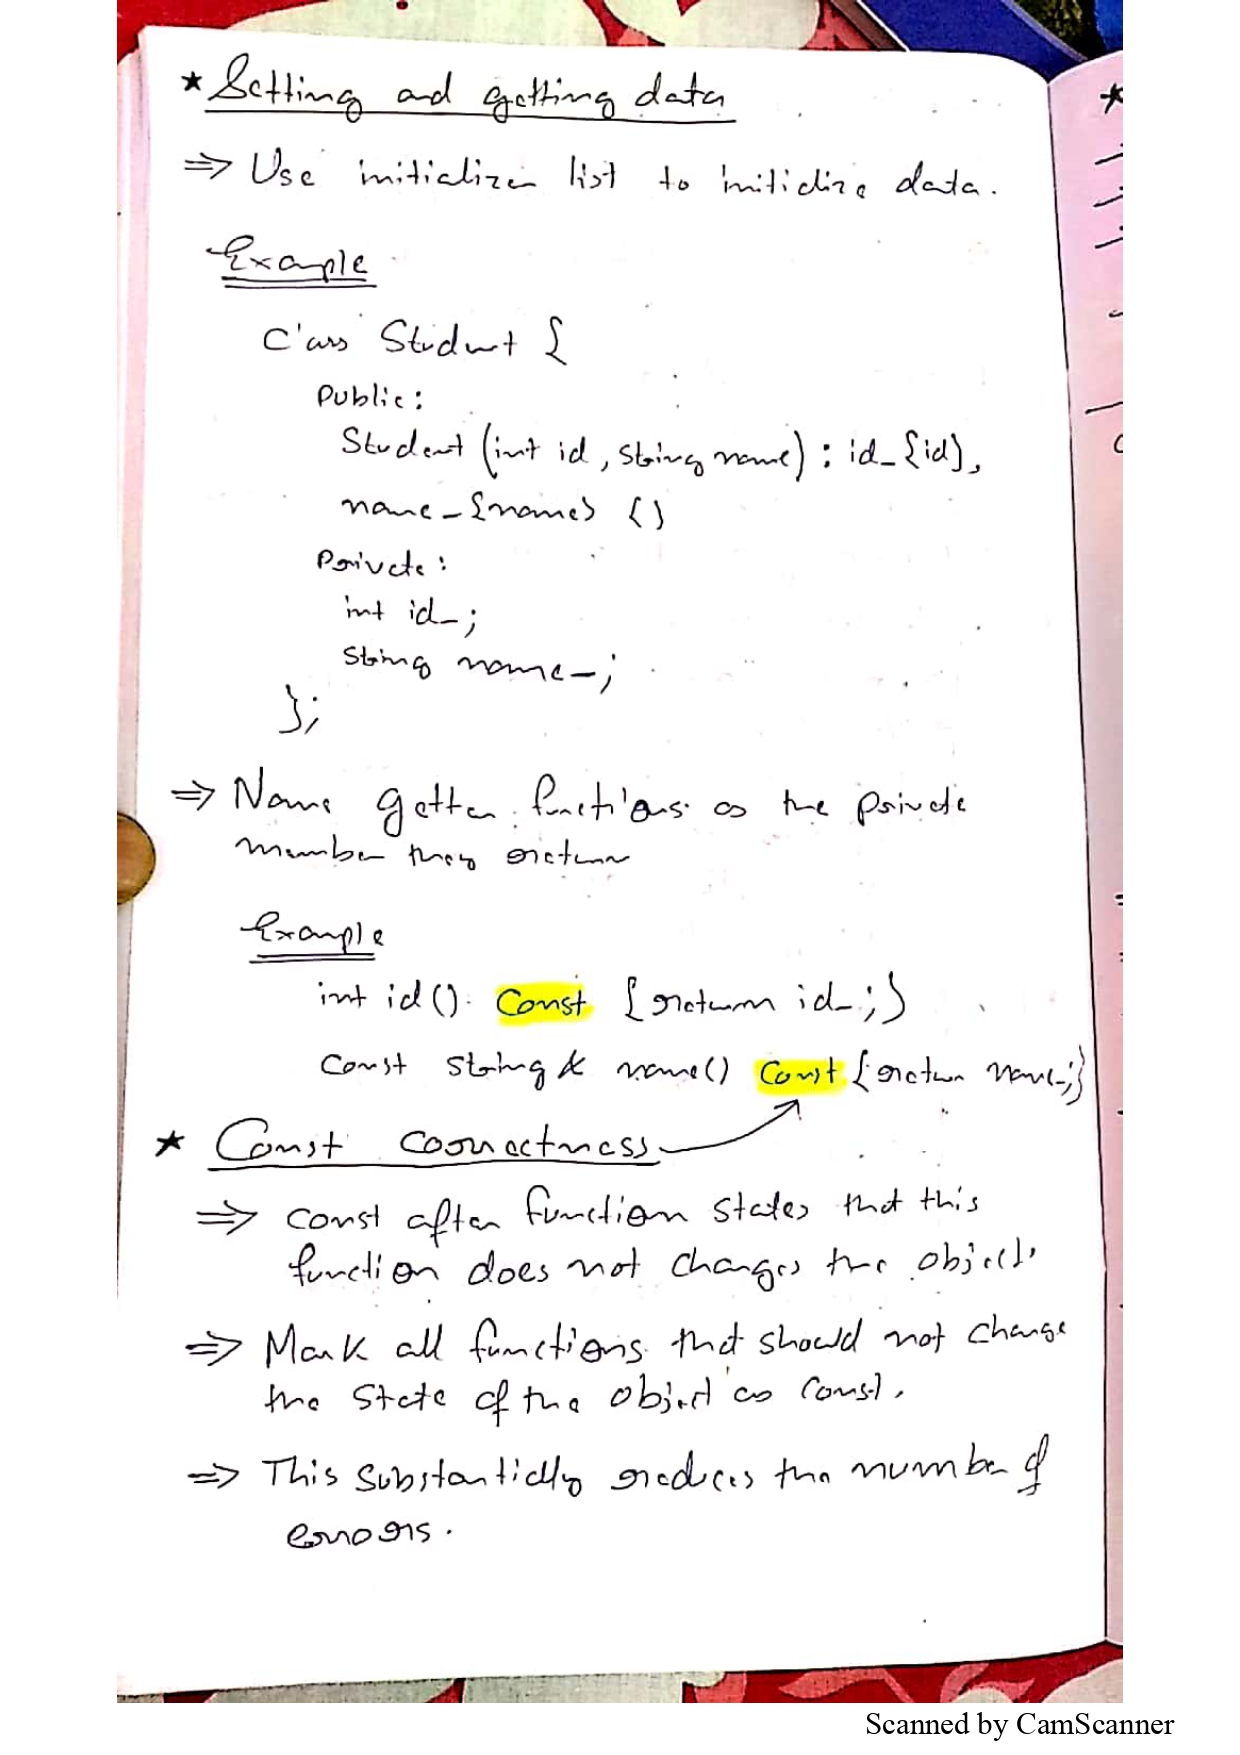 ★ Setting and getting data
⇒ Use initializer list to initialize data.
Example
Class Student {
Public:
Student (int id, string name) : id_{id},
name_{name} {}
Private:
int id_;
string name_;
};
⇒ Name getter functions as the private
member they return
Example
int id() Const {return id_;}
Const string & name() Const {return name_;}
★ Const correctness
⇒ Const after function states that this
function does not changes the object.
⇒ Mark all functions that should not change
the state of the object as const.
⇒ This substantially reduces the number of
errors.
Scanned by CamScanner